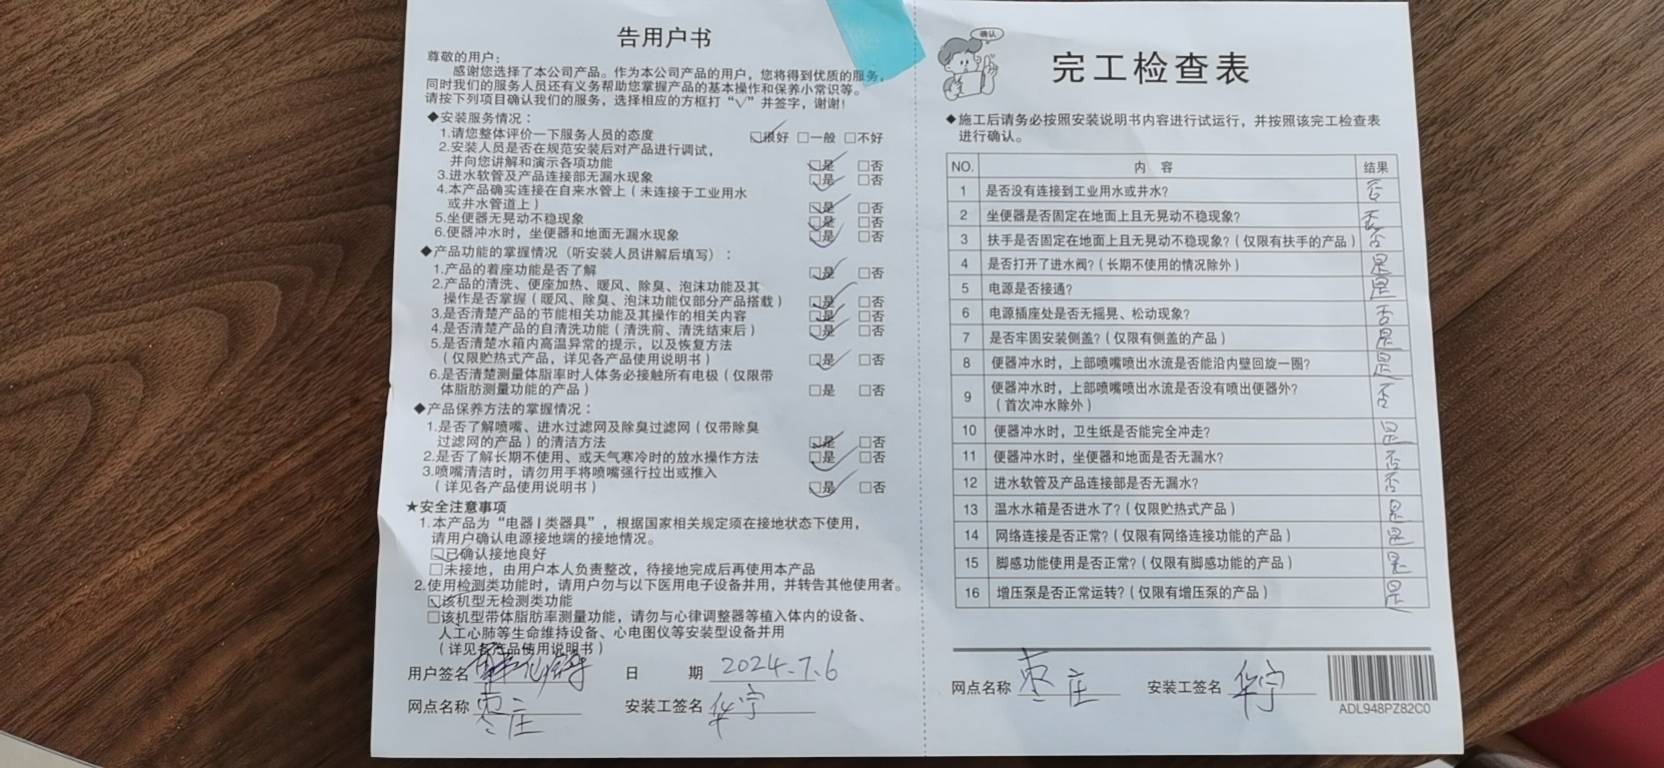 告用户书
尊敬的用户：
感谢您选择了本公司产品。作为本公司产品的用户，您将得到优质的服务，
同时我们的服务人员还有义务帮助您掌握产品的基本操作和保养小常识等。
请按下列项目确认我们的服务，选择相应的方框打“√”并签字，谢谢！
◆安装服务情况：
1.请您整体评价一下服务人员的态度 ☑很好 □一般 □不好
2.安装人员是否在规范安装后对产品进行调试，
并向您讲解和演示各项功能 ☑是 □否
3.进水软管及产品连接部无漏水现象 ☑是 □否
4.本产品确实连接在自来水管上（未连接于工业用水
或井水管道上） ☑是 □否
5.坐便器无晃动不稳现象 ☑是 □否
6.便器冲水时，坐便器和地面无漏水现象 ☑是 □否
◆产品功能的掌握情况（听安装人员讲解后填写）：
1.产品的着座功能是否了解 ☑是 □否
2.产品的清洗、便座加热、暖风、除臭、泡沫功能及其
操作是否掌握（暖风、除臭、泡沫功能仅部分产品搭载） ☑是 □否
3.是否清楚产品的节能相关功能及其操作的相关内容 ☑是 □否
4.是否清楚产品的自清洗功能（清洗前、清洗结束后） ☑是 □否
5.是否清楚水箱内高温异常的提示，以及恢复方法
（仅限贮热式产品，详见各产品使用说明书） ☑是 □否
6.是否清楚测量体脂率时人体务必接触所有电极（仅限带
体脂肪测量功能的产品） □是 □否
◆产品保养方法的掌握情况：
1.是否了解喷嘴、进水过滤网及除臭过滤网（仅带除臭
过滤网的产品）的清洁方法 ☑是 □否
2.是否了解长期不使用、或天气寒冷时的放水操作方法 ☑是 □否
3.喷嘴清洁时，请勿用手将喷嘴强行拉出或推入
（详见各产品使用说明书） ☑是 □否
★安全注意事项
1.本产品为“电器Ⅰ类器具”，根据国家相关规定须在接地状态下使用，
请用户确认电源接地端的接地情况。
☑已确认接地良好
□未接地，由用户本人负责整改，待接地完成后再使用本产品
2.使用检测类功能时，请用户勿与以下医用电子设备并用，并转告其他使用者。
☑该机型无检测类功能
□该机型带体脂肪率测量功能，请勿与心律调整器等植入体内的设备、
人工心肺等生命维持设备、心电图仪等安装型设备并用
（详见各产品使用说明书）
用户签名 日 期 2024.7.6
网点名称 枣庄 安装工签名 华宁
确认
完工检查表
◆施工后请务必按照安装说明书内容进行试运行，并按照该完工检查表
进行确认。
NO. 内 容 结果
1 是否没有连接到工业用水或井水? 否
2 坐便器是否固定在地面上且无晃动不稳现象? 否
3 扶手是否固定在地面上且无晃动不稳现象?（仅限有扶手的产品） 否
4 是否打开了进水阀?（长期不使用的情况除外） 是
5 电源是否接通? 是
6 电源插座处是否无摇晃、松动现象? 否
7 是否牢固安装侧盖?（仅限有侧盖的产品） 是
8 便器冲水时，上部喷嘴喷出水流是否能沿内壁回旋一圈? 是
9 便器冲水时，上部喷嘴喷出水流是否没有喷出便器外?
（首次冲水除外） 否
10 便器冲水时，卫生纸是否能完全冲走? 是
11 便器冲水时，坐便器和地面是否无漏水? 否
12 进水软管及产品连接部是否无漏水? 否
13 温水水箱是否进水了?（仅限贮热式产品） 是
14 网络连接是否正常?（仅限有网络连接功能的产品） 是
15 脚感功能使用是否正常?（仅限有脚感功能的产品） 是
16 增压泵是否正常运转?（仅限有增压泵的产品） 是
网点名称 枣庄 安装工签名 华宁
ADL948PZ82C0